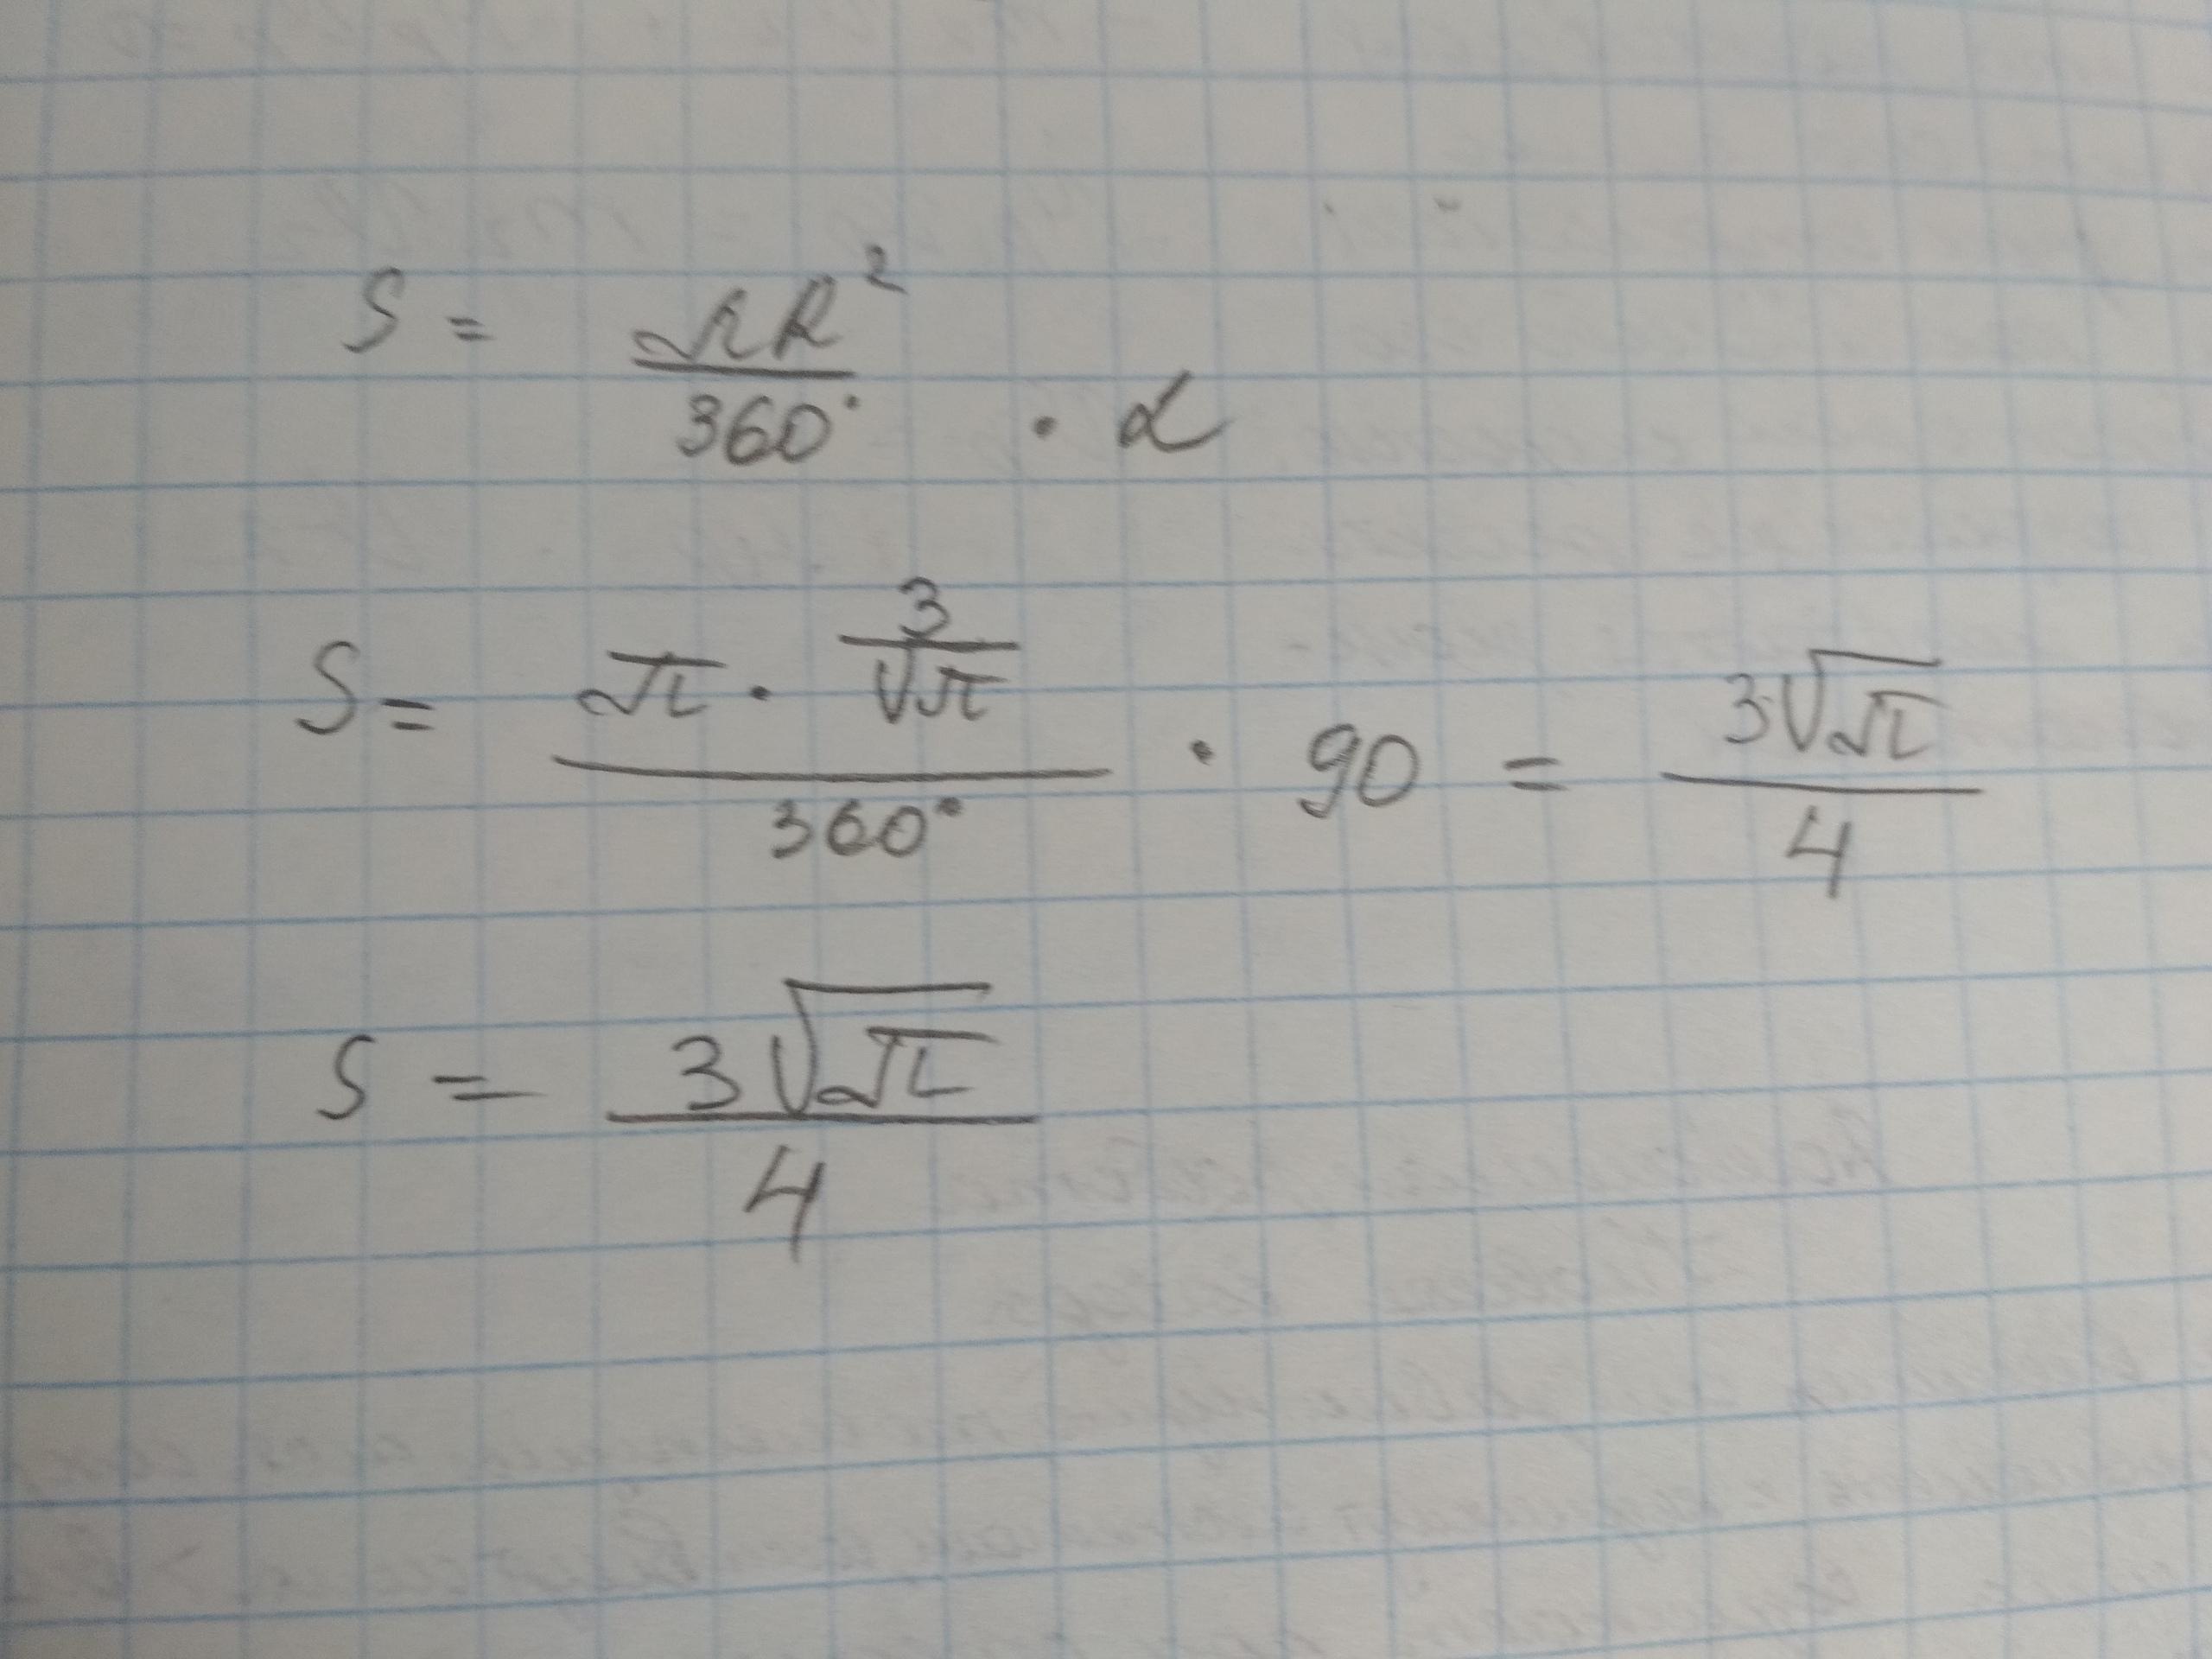 S = πR² / 360° · α
S = (π · 3/√π) / 360° · 90 = 3√π / 4
S = 3√π / 4